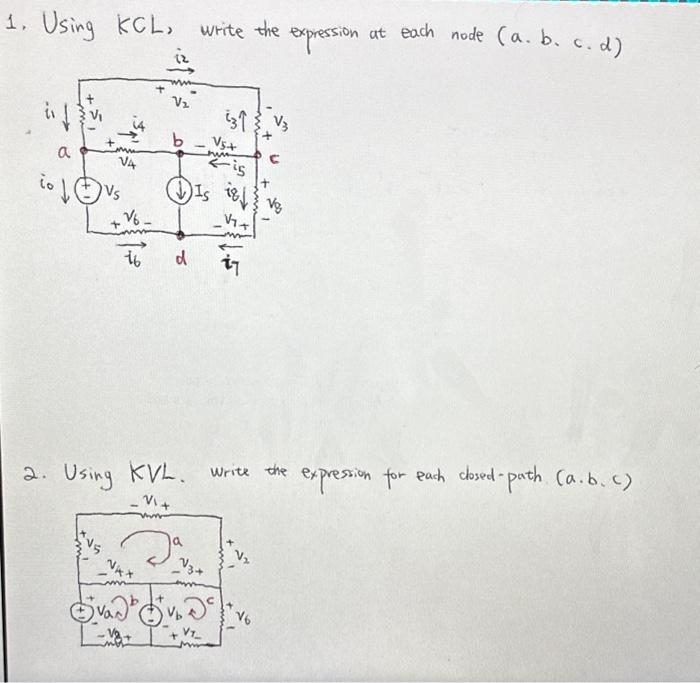 1. Using KCL, write the expression at each node (a. b. c. d)
i2
+ V2 -
i1 + V1 -
i4
i3 - V3 +
a + V4 b - V5 + c
i5
i0 + - V5 Is i8 + V8 -
+ V6 - - V7 +
i6 d i7
2. Using KVL. write the expression for each closed-path (a. b. c)
- V1 +
+ V5 - a + V2 -
- V4 + - V3 +
+ Va - b + Vb - c + V6 -
- V8 + + V7 -